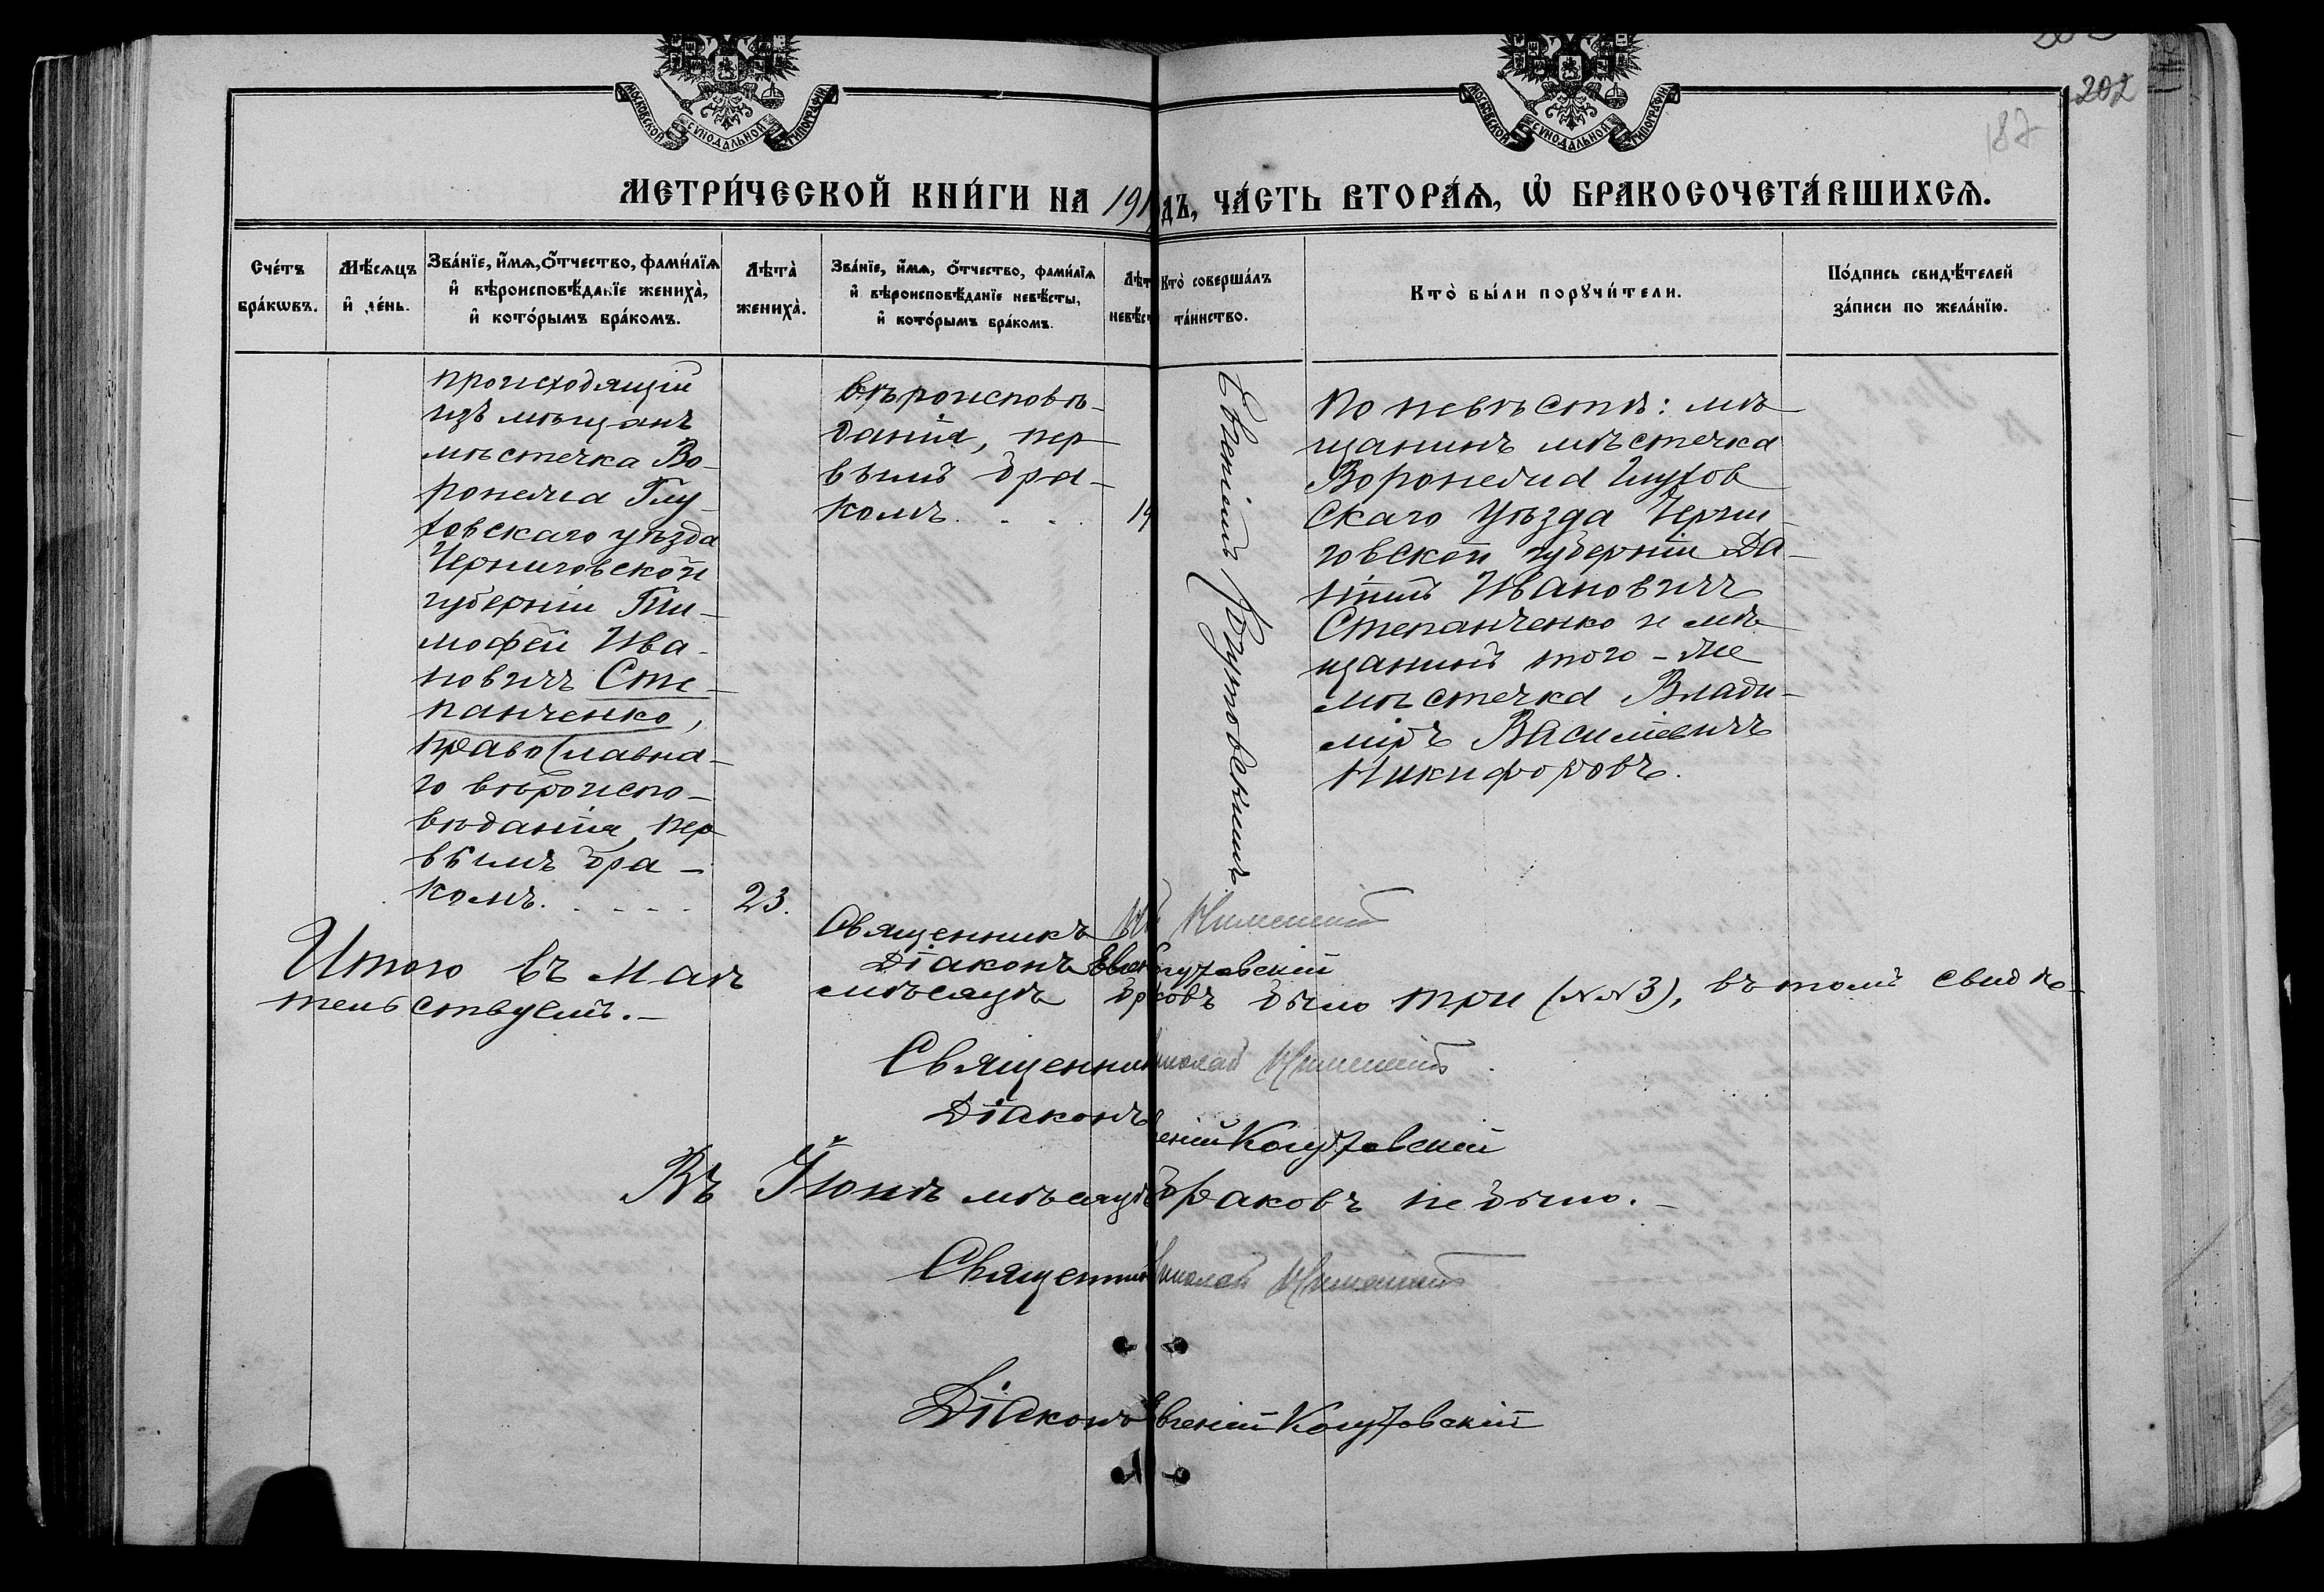 202
187
МОСКОВСКОЙ СѴНОДАЛЬНОЙ ТИПОГРАФІИ
МОСКОВСКОЙ СѴНОДАЛЬНОЙ ТИПОГРАФІИ
МЕТРИ́ЧЕСКОЙ КНИ́ГИ НА 191 ДЪ, ЧА́СТЬ ВТОРА́Ѧ, Ѽ БРАКОСОЧЕТА́ВШИХСѦ.
Сче́тъ
бра́кѡвъ.
Мѣ́сѧцъ
и҆ де́нь.
Зва́нїе, и҆́мѧ, ѻ҆́тчество, фами́лїѧ
и҆ вѣроисповѣ́данїе жениха̀,
и҆ кото́рымъ бра́комъ.
Лѣта̀
жениха̀.
Зва́нїе, и҆́мѧ, ѻ҆́тчество, фами́лїѧ
и҆ вѣроисповѣ́данїе невѣ́сты,
и҆ кото́рымъ бра́комъ.
Лѣт
невѣ́ст
Кто̀ соверша́лъ
та́инство.
Кто̀ бы́ли порꙋчи́тели.
По́дпись свидѣ́телей
за́писи по жела́нїю.
происходящій
изъ мѣщанъ
мѣстечка Во-
ронежа Глу-
ховскаго уѣзда
Черниговской
губерніи Ти-
мофей Ива-
новичъ Сте-
панченко,
православна-
го вѣроиспо-
вѣданія, пер
вымъ бра-
комъ. . - - - -
23.
вѣроисповѣ-
данія, пер
вымъ бра-
комъ. . . .
19
Евгеніемъ Когутовскимъ.
По невѣстѣ: мѣ
щанинъ мѣстечка
Воронежа Глухов
скаго уѣзда Черни-
говской губерніи Да-
ніилъ Ивановичъ
Степанченко и мѣ
щанинъ того-же
мѣстечка Влади-
міръ Василіевичъ
Никифоровъ.
Священникъ
Діаконъ Евген Когутовскій
Итого въ Маѣ мѣсяцѣ бр ковъ было три (№№ 3), въ томъ свидѣ-
тельствуемъ.-
Священник иколай
Діаконъ еній Когутовскій
Въ Іюнѣ мѣсяцѣ браковъ не было.-
Священник иколай
Діаконъ Евгеній Когутовскій